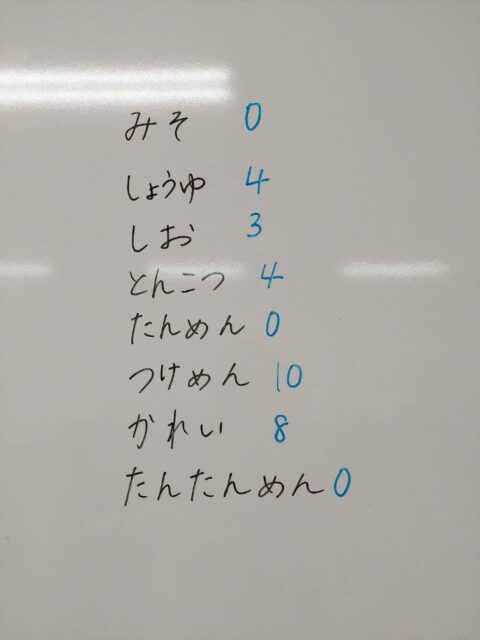 みそ 0
しょうゆ 4
しお 3
とんこつ 4
たんめん 0
つけめん 10
かれい 8
たんたんめん 0